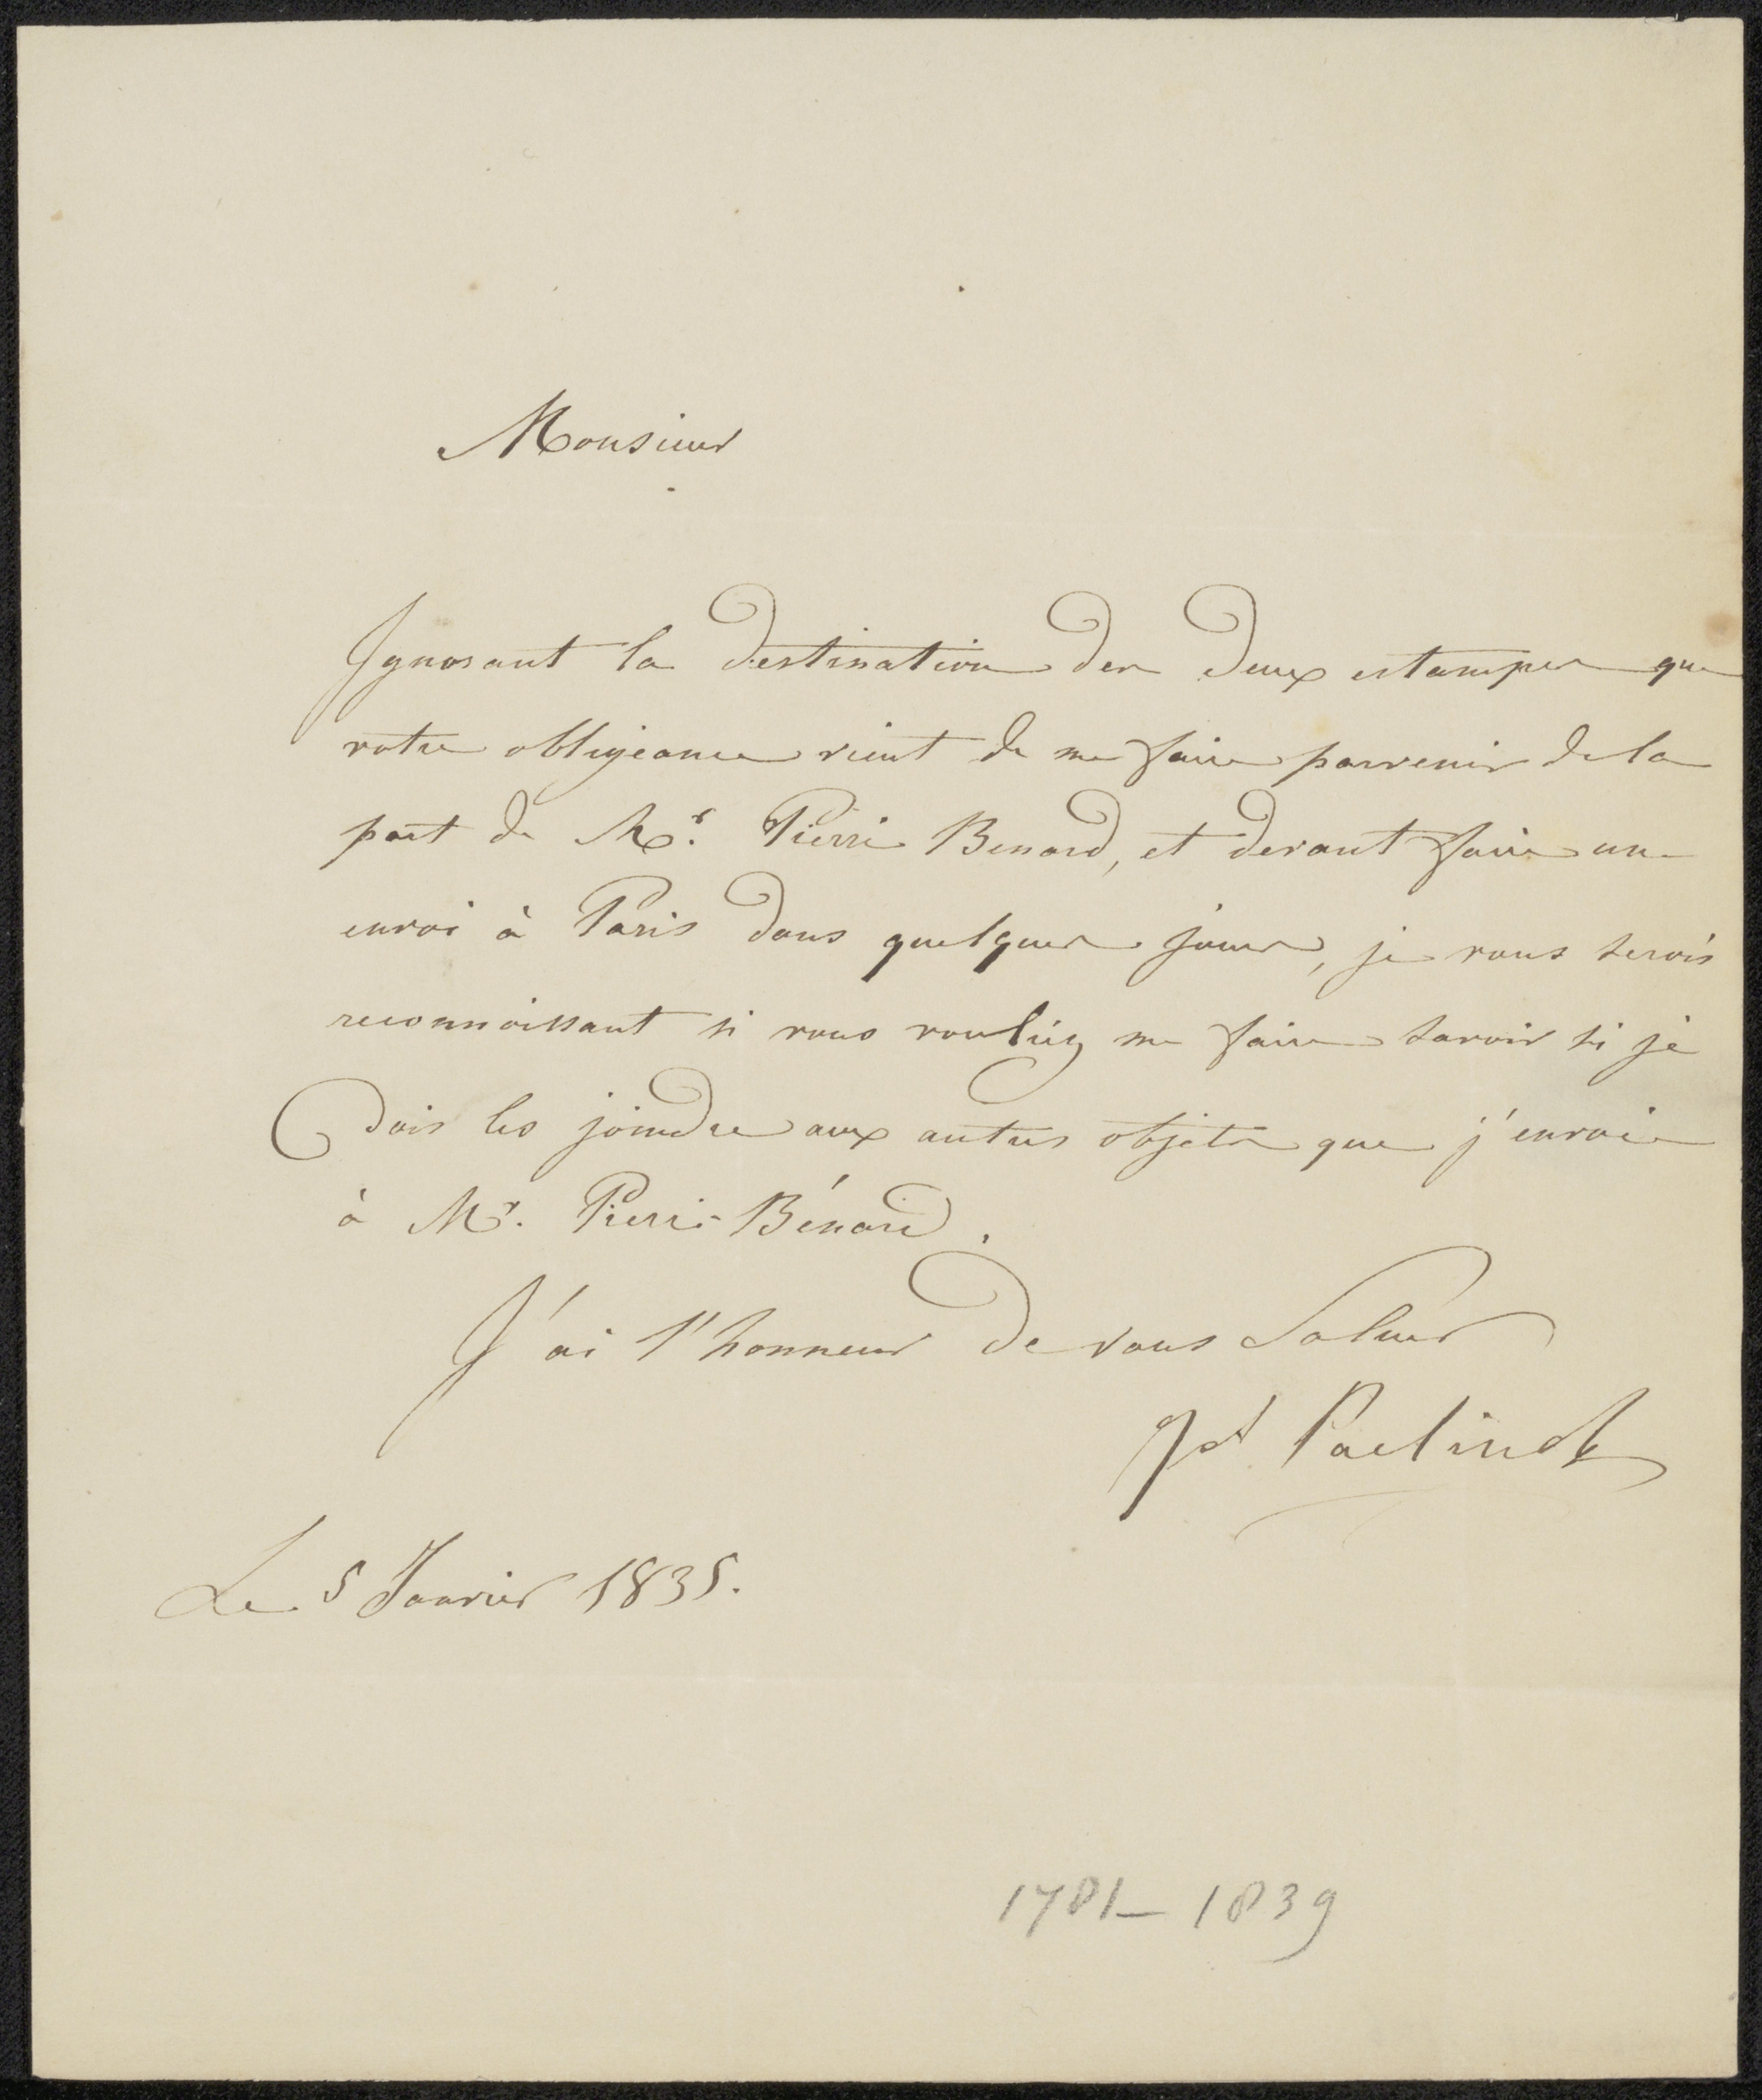 Monsieur
Ignorant la destination des deux estampes que
votre obligeance vient de me faire parvenir de la
part de Mr. Pierre Benard, et devant faire un
envoi à Paris dans quelques jours, je vous serois
reconnoissant si vous vouliez me faire savoir si je
dois les joindre aux autres objets que j'envoie
à Mr. Pierre Bénard.
J'ai l'honneur de vous Saluer
Jph Paelinck
Le 5 Janvier 1835.
1781-1839